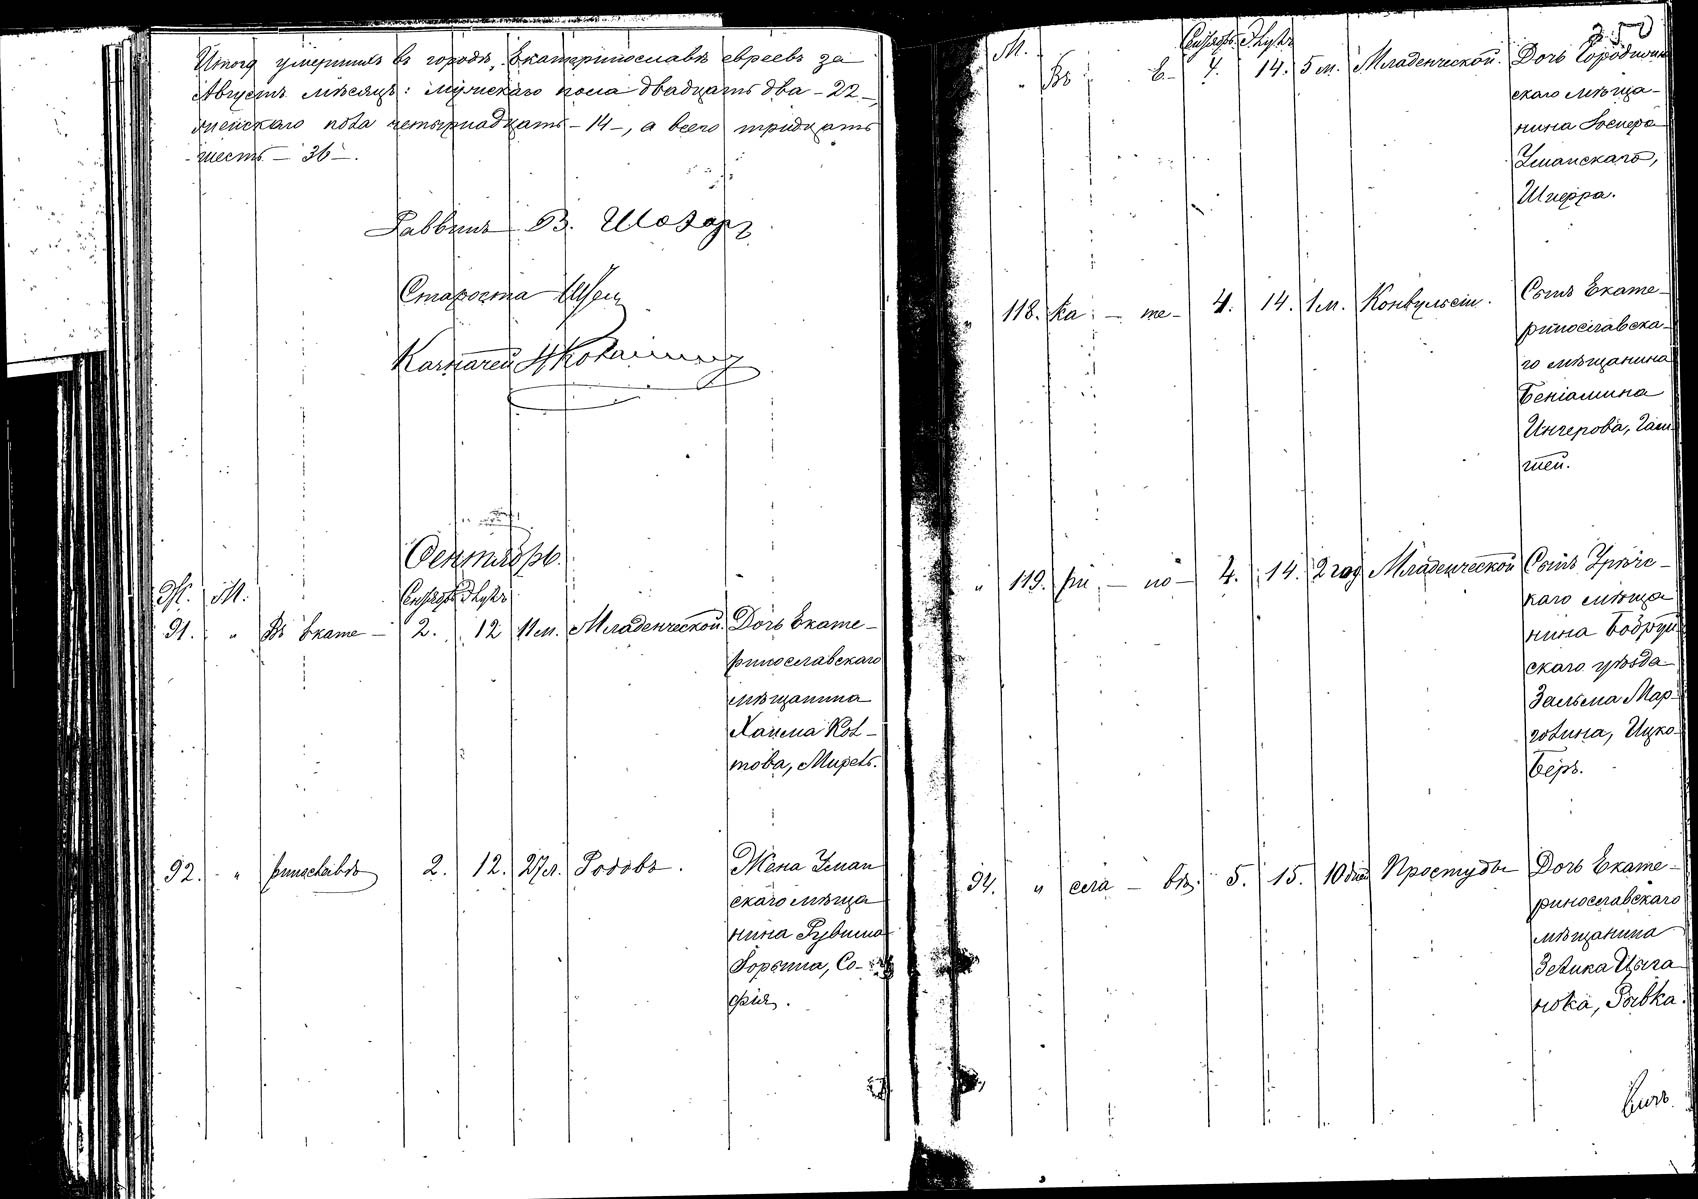 Итого умершихъ въ городѣ Екатеринославѣ евреевъ за
Августъ мѣсяцъ: мужскаго пола двадцать два - 22 -,
женскаго пола четырнадцать - 14 -, а всего тридцать
шесть - 36 -.
Раввинъ В. Шохоръ
Староста
Казначей
Сентябрь.
Ж. М. Сентябрь Элулъ
91. " Въ Екате - 2. 12 11 м. Младенческой. Дочь Екате-
ринославскаго
мѣщанина
Хаима Кол-
това, Мирель.
92. " ринославѣ 2. 12. 27 л. Родовъ. Жена Уман
скаго мѣща
нина Рувима
Горына, Со-
фія.
350
М. Сентябрь Элулъ
" Въ Е- 4. 14. 5 м. Младенческой. Дочь
скаго мѣща-
нина
Уманскаго,
Шперра.
" 118. ка - те- 4. 14. 1 м. Конвульсіи. Сынъ Екате-
ринославска-
го мѣщанина
Беніамина
Инчерова,
" 119. ри - но- 4. 14. 2 год Младенческой Сынъ
каго мѣща
нина Бобруй
скаго уѣзда
Зальма Мар-
голина, Ицко-
Беръ.
94. " сла - вѣ. 5. 15. 10 дней Простуды Дочь Екате-
ринославскаго
мѣщанина
Зелика Цыга
нока, Рывка.